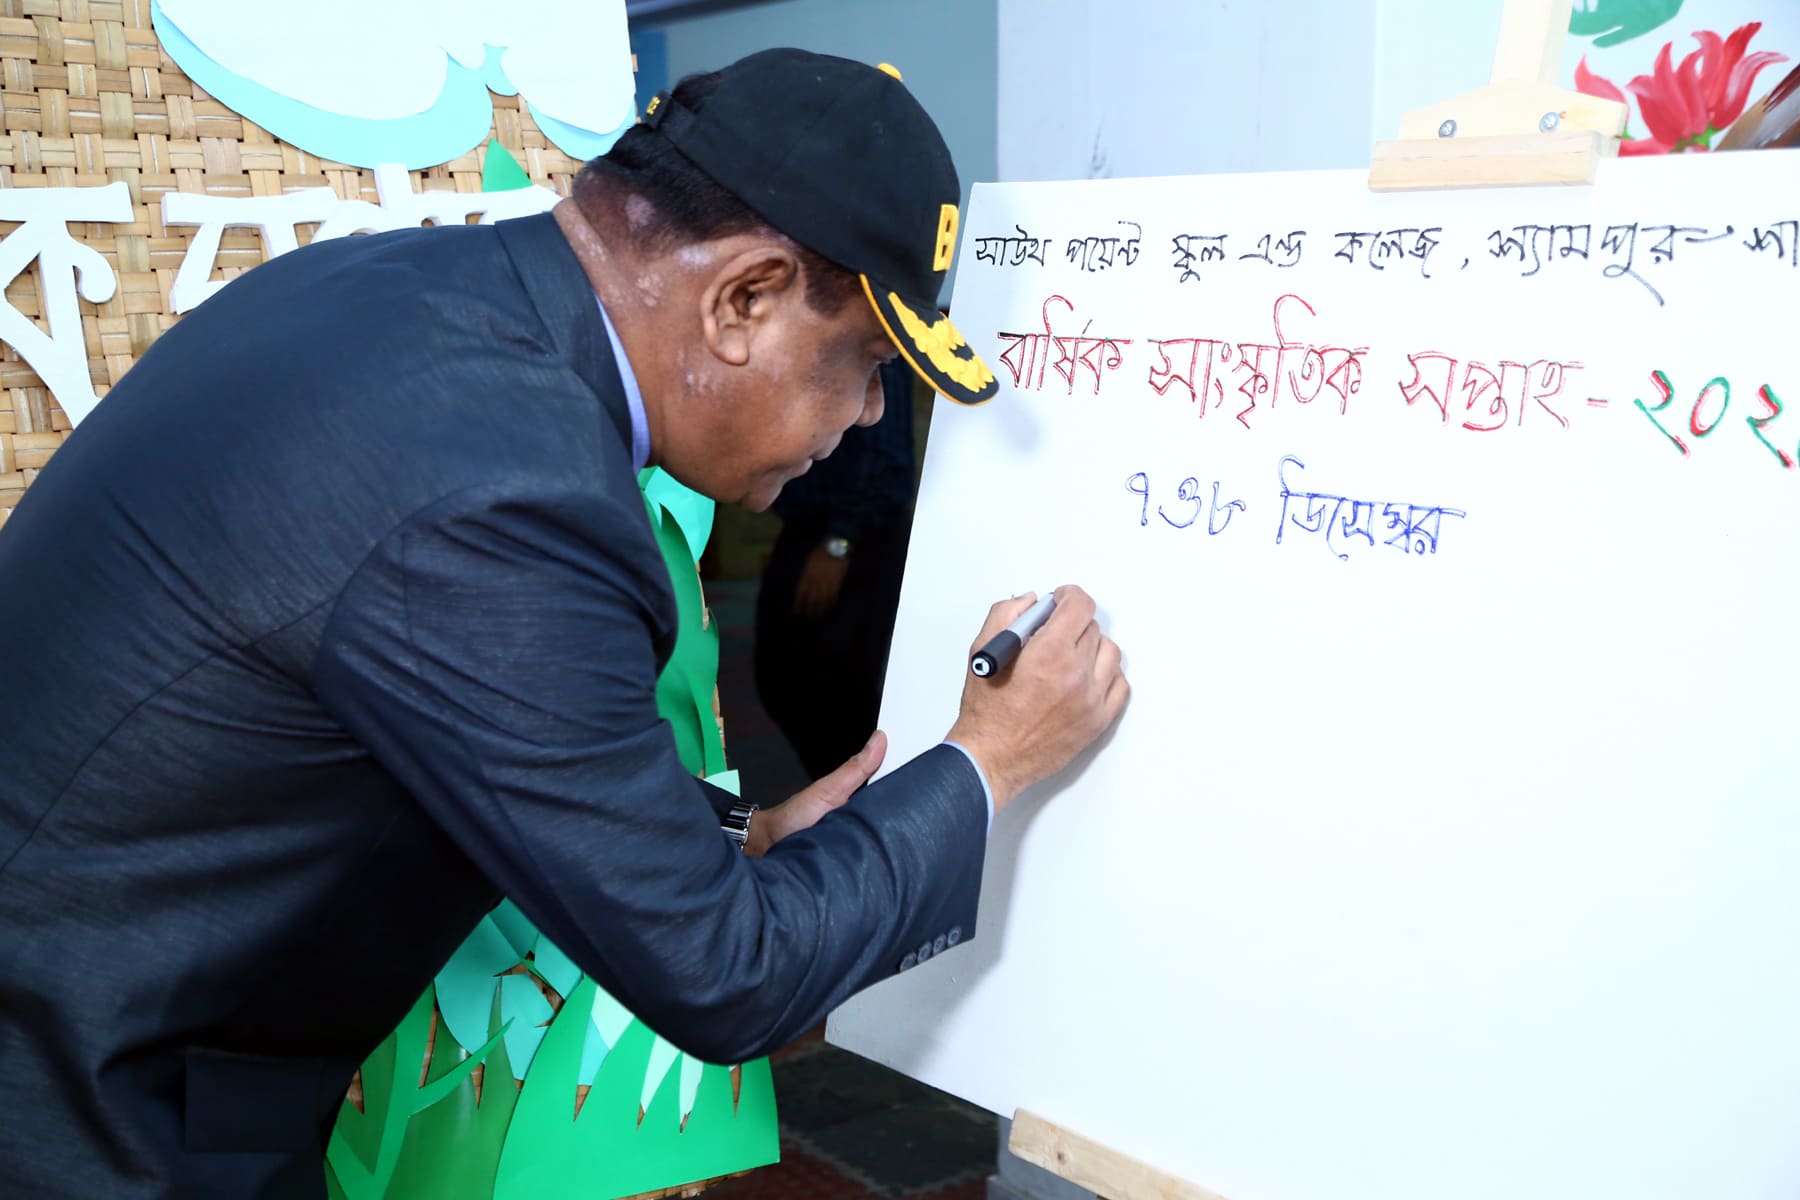 সাউথ পয়েন্ট স্কুল এন্ড কলেজ, শ্যামপুর-
বার্ষিক সাংস্কৃতিক সপ্তাহ-২০২
৭ও৮ ডিসেম্বর